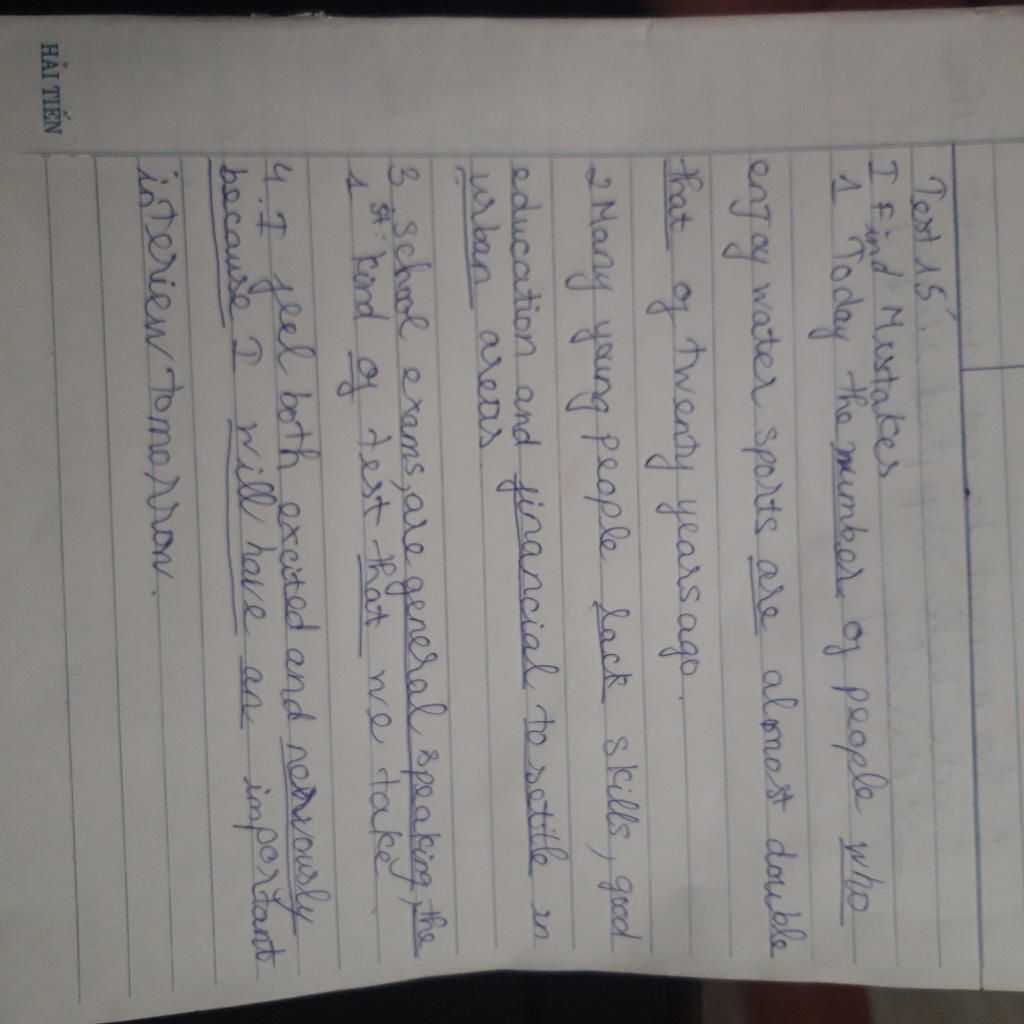 HẢI TIẾN
Test 15
I Find Mistakes
1 Today the number of people who
enjoy water sports are almost double
that of twenty years ago.
2 Many young people lack skills, good
education and financial to settle in
urban areas.
3. School exams, are general speaking, the
1st kind of test that we take.
4. I feel both excited and nervously
because I will have an important
interview tomorrow.